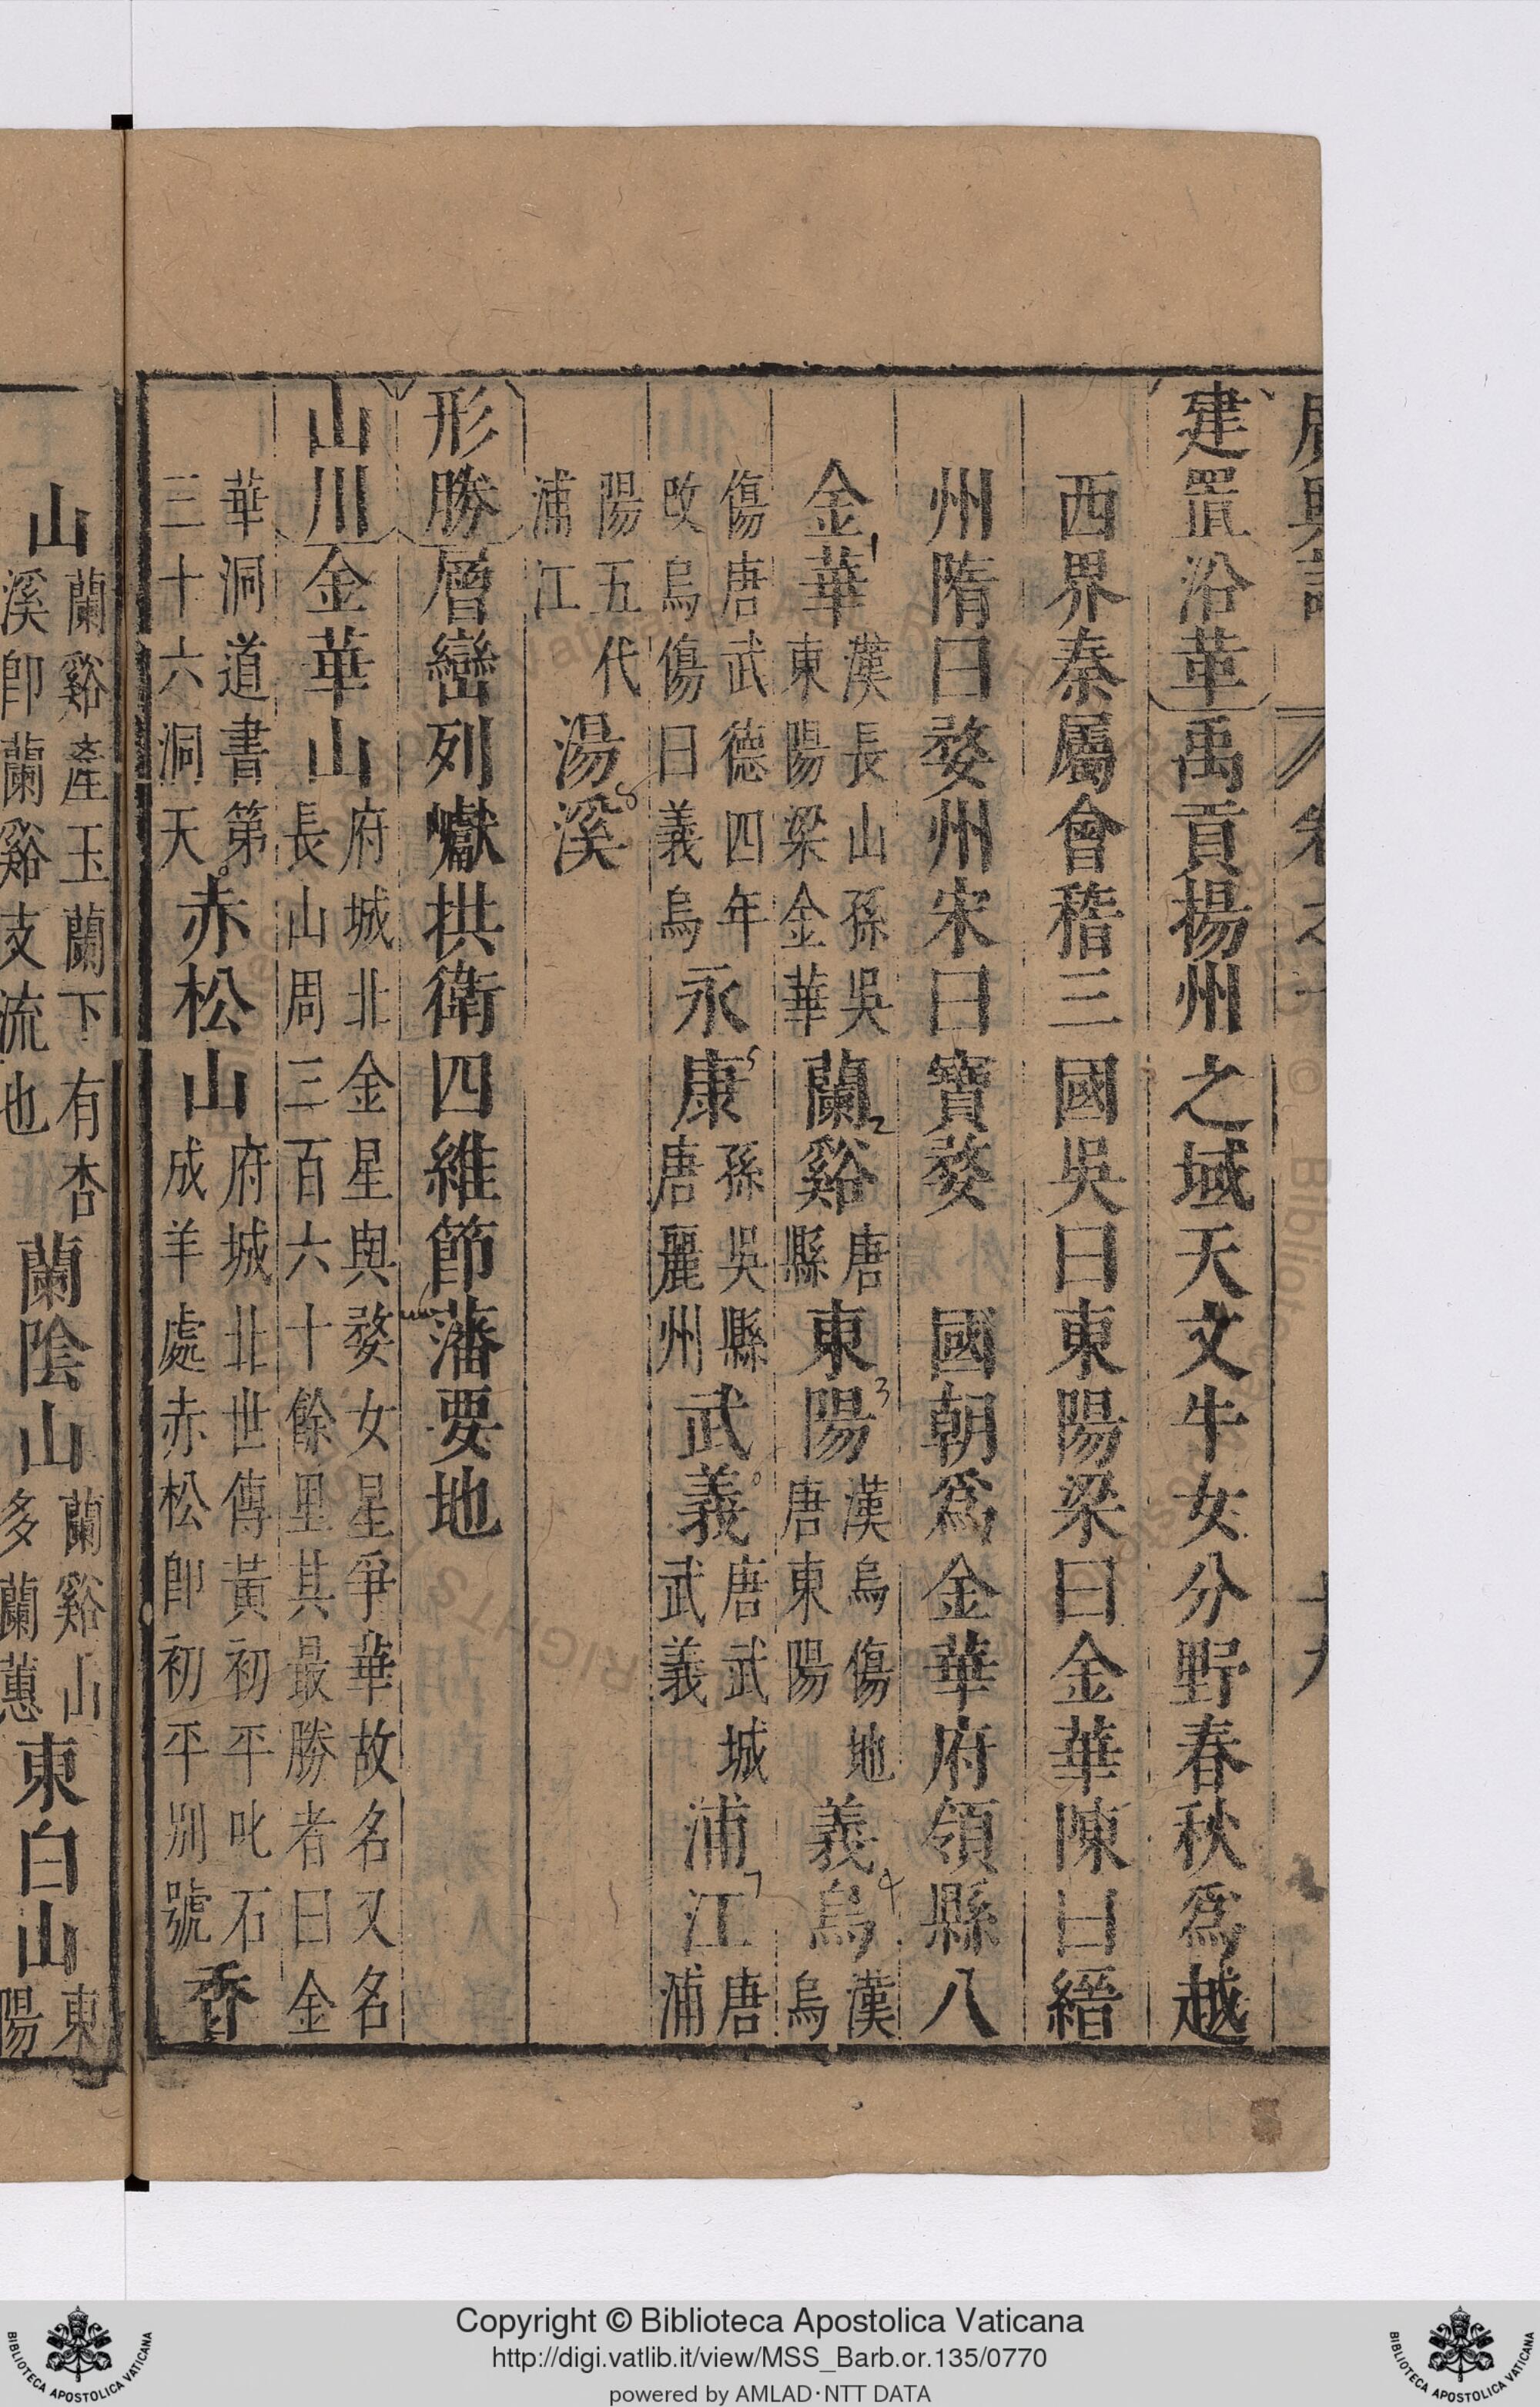 建置沿革禹貢揚州之域天文牛女分野春秋爲越
西界秦屬會稽三國吳曰東陽梁曰金華陳曰縉
州隋曰婺州宋曰寶婺 國朝爲金華府領縣八
金華漢長山孫吳東陽梁金華蘭谿唐縣東陽漢烏傷地唐東陽義烏漢烏
傷唐武德四年改烏傷曰義烏永康孫吳縣唐麗州武義唐武城武義浦江唐浦
陽五代浦江湯溪
形勝層巒列巘拱衛四維節藩要地
山川金華山府城北金星與婺女星爭華故名又名長山周三百六十餘里其最勝者曰金
華洞道書第三十六洞天赤松山府城北世傳黃初平叱石成羊處赤松卽初平別號香
山蘭谿產玉蘭下有杏溪卽蘭谿支流也蘭陰山蘭谿山多蘭蕙東白山東陽
1
2
3
4
5
7
8
Copyright © Biblioteca Apostolica Vaticana
http://digi.vatlib.it/view/MSS_Barb.or.135/0770
powered by AMLAD·NTT DATA
BIBLIOTECA APOSTOLICA VATICANA
BIBLIOTECA APOSTOLICA VATICANA